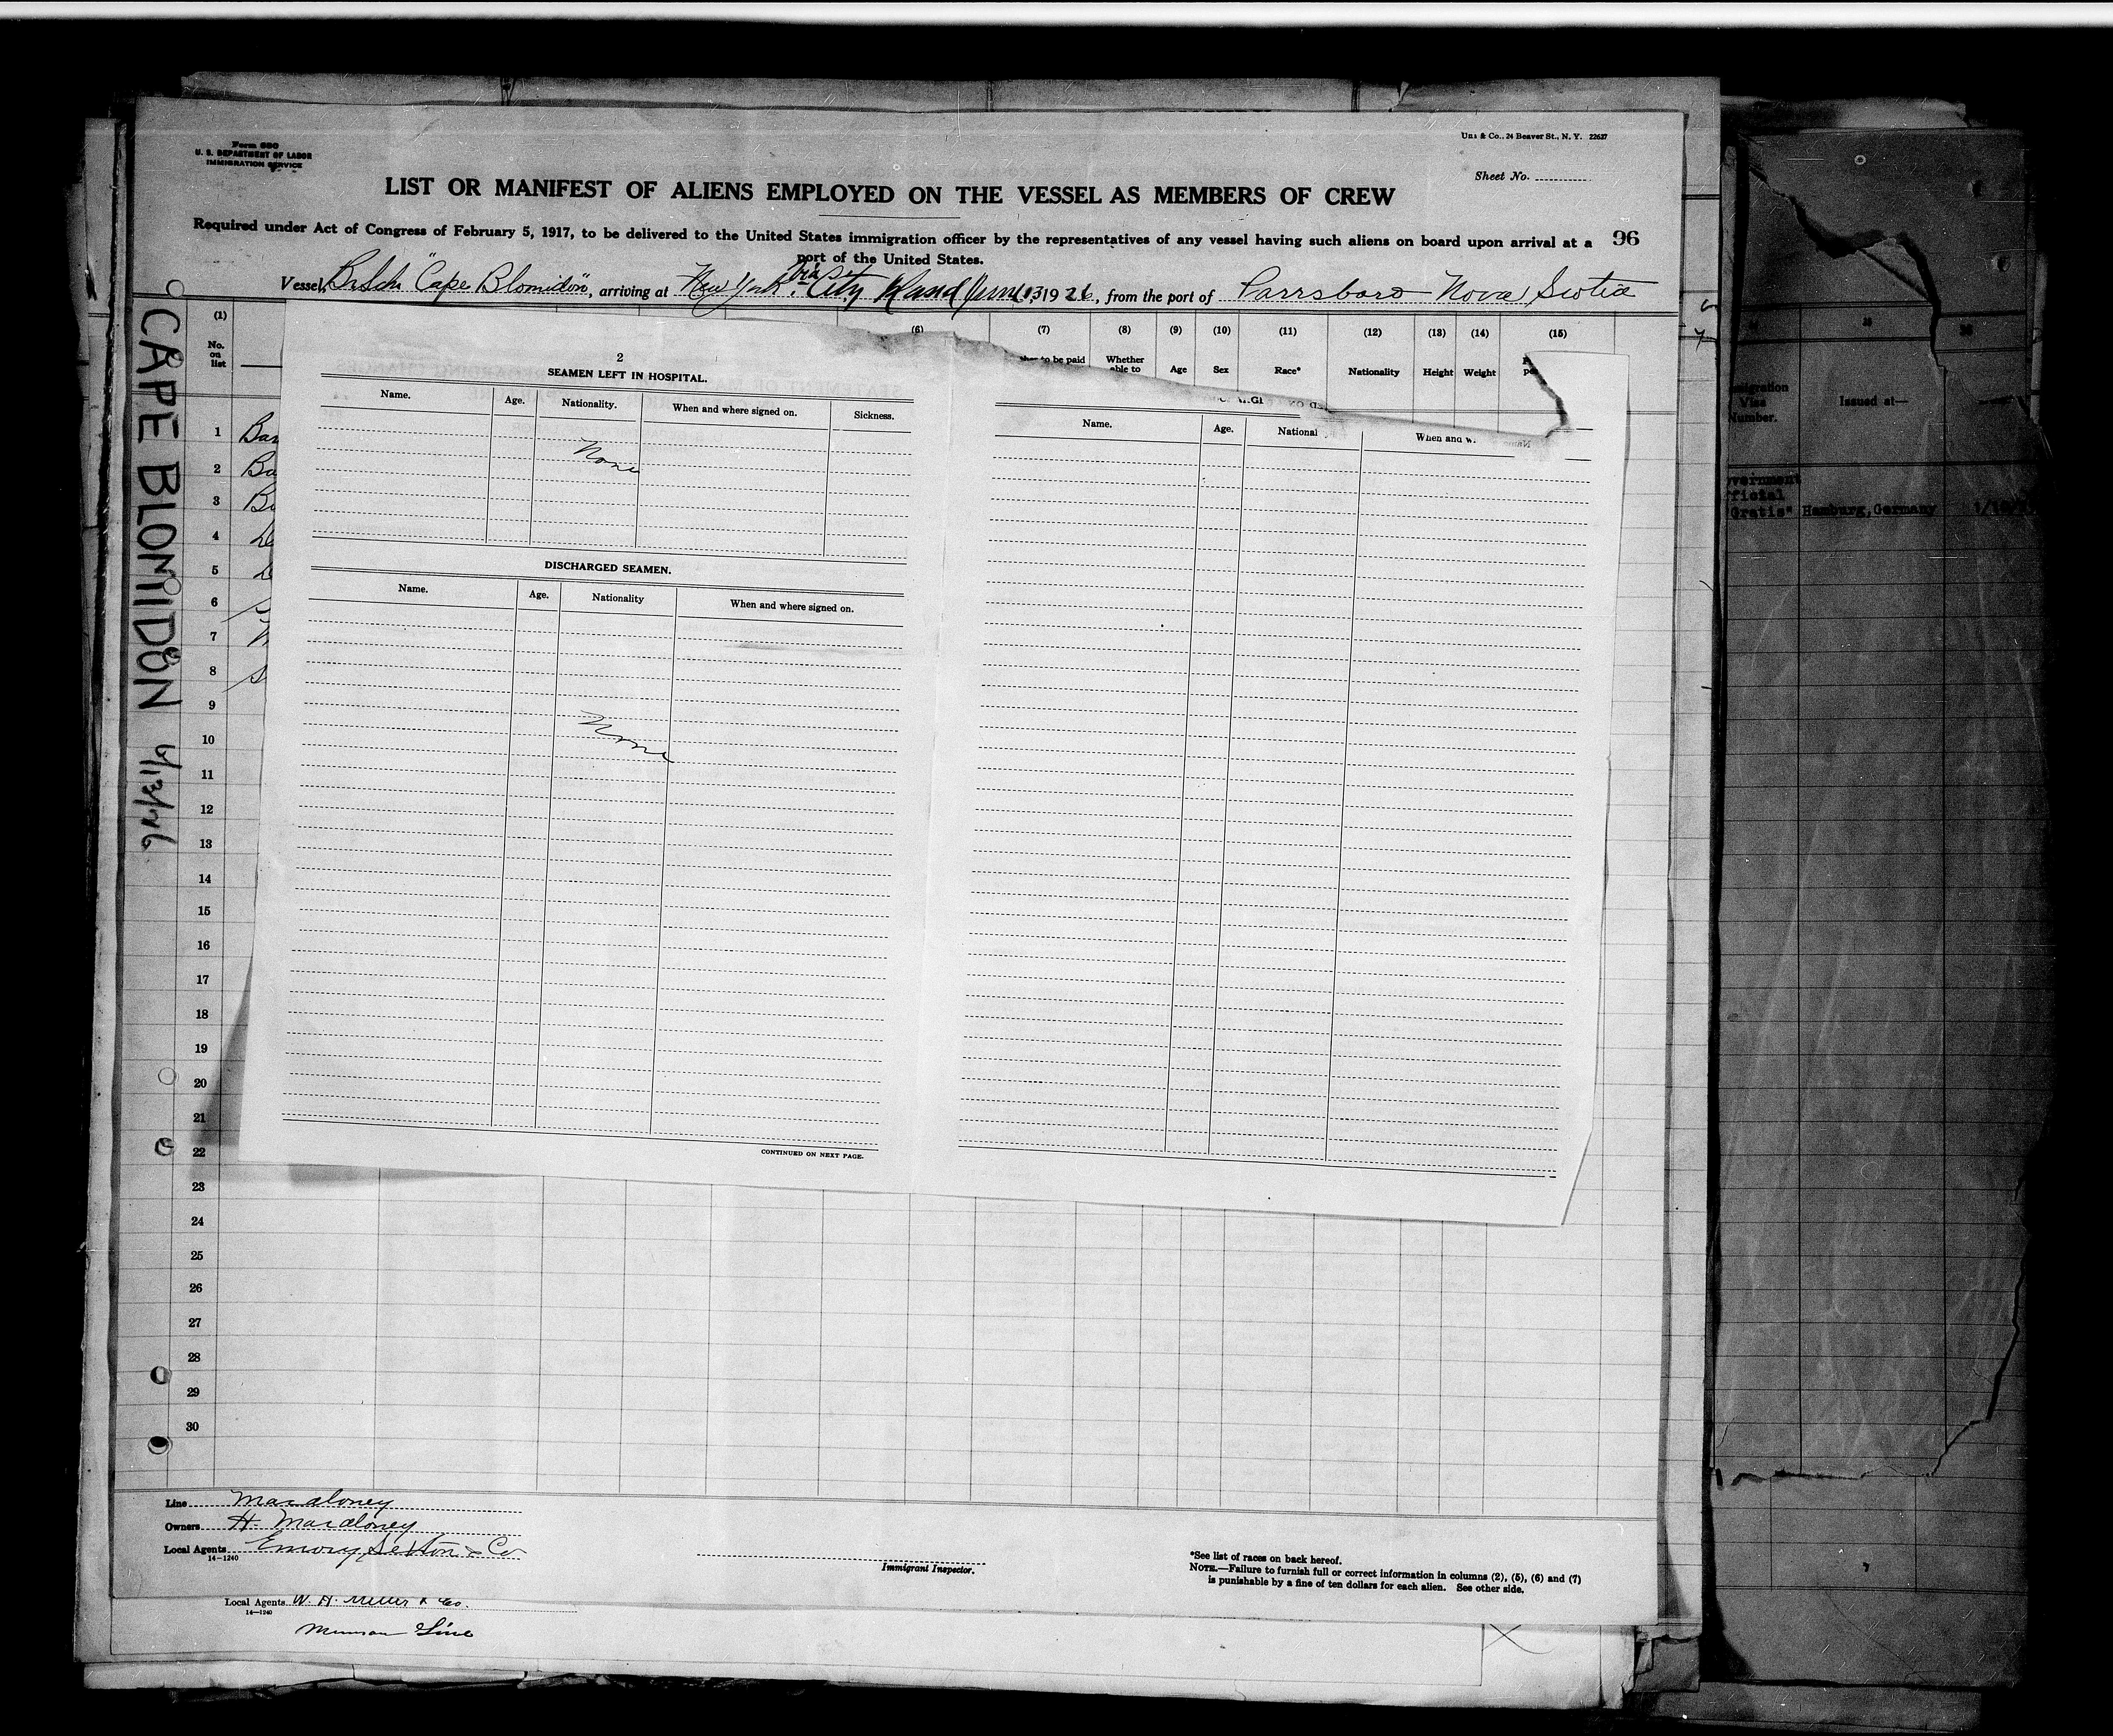 Form 680
U. S. DEPARTMENT OF LABOR
IMMIGRATION SERVICE
& Co., 24 Beaver St., N. Y. 22637
Sheet No.
LIST OR MANIFEST OF ALIENS EMPLOYED ON THE VESSEL AS MEMBERS OF CREW
Required under Act of Congress of February 5, 1917, to be delivered to the United States immigration officer by the representatives of any vessel having such aliens on board upon arrival at a
port of the United States.
96
Vessel, Br Sch "Cape Blomidon", arriving at New York via City Island June 13 1926, from the port of Parrsboro Nova Scotia
CAPE BLOMIDON 6/13/26
(1) (6) (7) (8) (9) (10) (11) (12) (13) (14) (15)
No. on list
to be paid
Whether able to
Age
Sex
Race*
Nationality
Height
Weight
2
SEAMEN LEFT IN HOSPITAL.
Name. Age. Nationality. When and where signed on. Sickness.
None
DISCHARGED SEAMEN.
Name. Age. Nationality When and where signed on.
None
CONTINUED ON NEXT PAGE.
Name. Age. National When and w
1 Bar
2 Ba
3
4
5
6
7
8
9
10
11
12
13
14
15
16
17
18
19
20
21
22
23
24
25
26
27
28
29
30
Line Macaloney
Owners H. Macaloney
Local Agents Emory, Sexton & Co
14—1240
Immigrant Inspector.
*See list of races on back hereof.
NOTE.—Failure to furnish full or correct information in columns (2), (5), (6) and (7)
is punishable by a fine of ten dollars for each alien. See other side.
Local Agents W. H. & Co.
14—1240
Munson Line
migration
Visa
Number.
Issued at—
vernment
ficial
Gratis" Hamburg, Germany